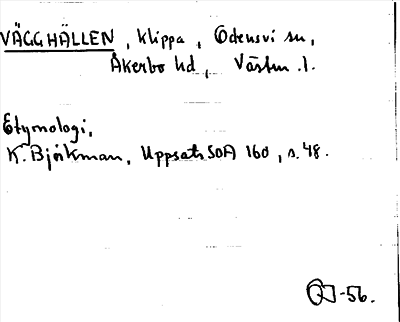 VÄGGHÄLLEN, klippa, Odensvi sn,
Åkerbo hd, Västm. l.
Etymologi,
K. Björkman, Uppsats SOA 160, s. 48.
-56.